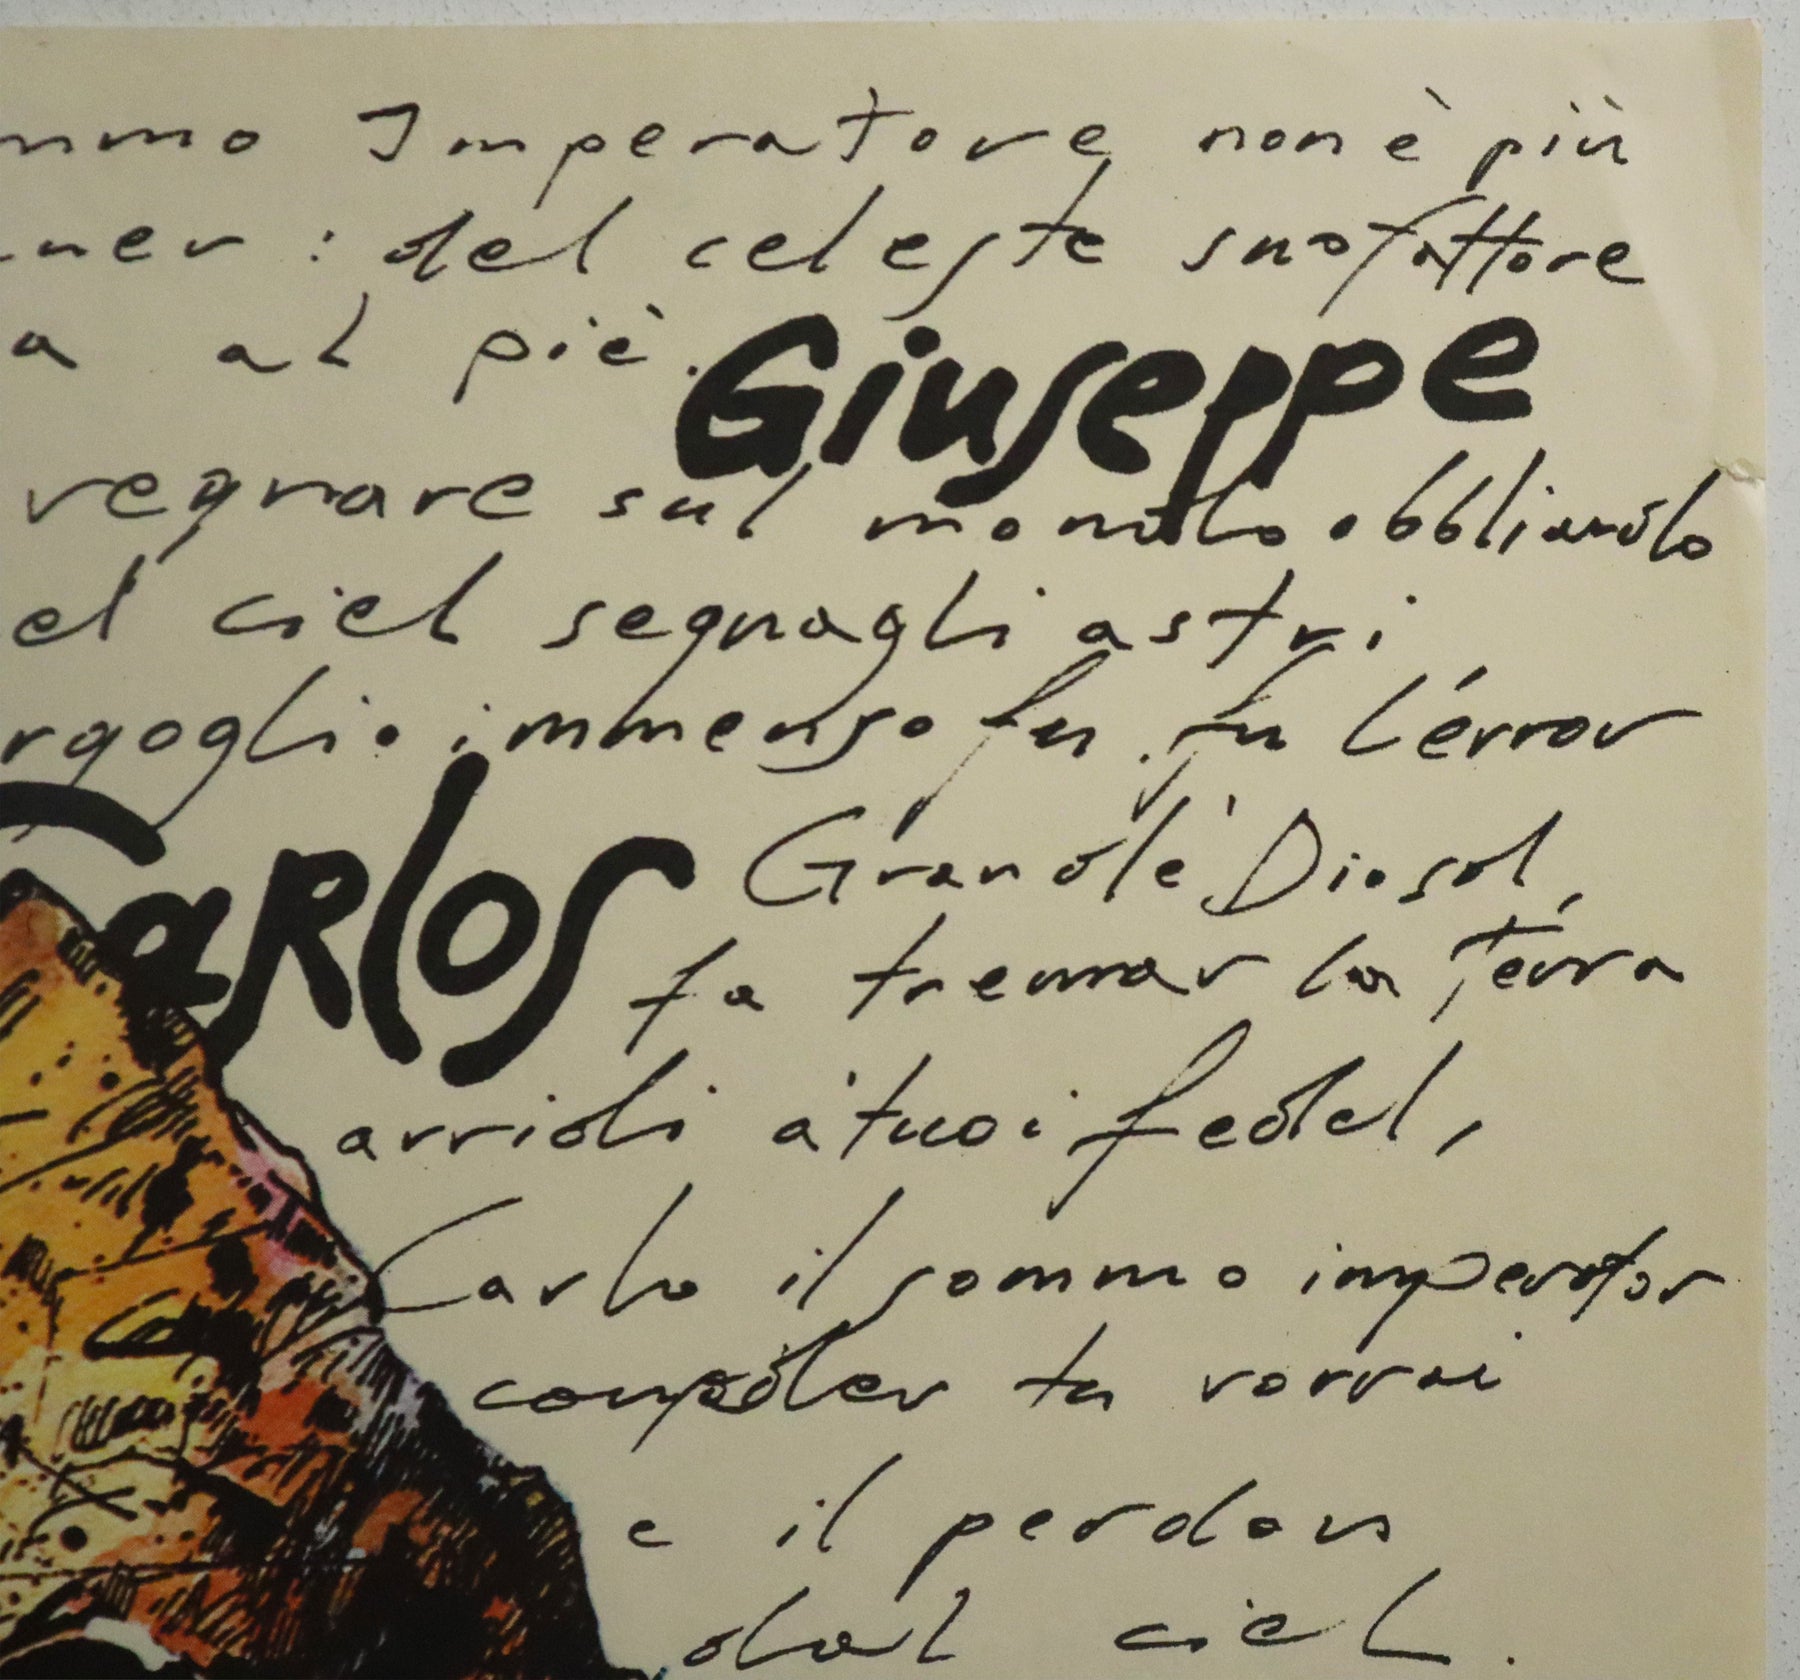 mmo Imperatore non è più
ner : del celeste suo fattore
a al piè.
Giuseppe
regnare sul mondo obbliando
el ciel segna gli astri
rgoglio immenso fu. fu l'error
Carlos
Grand'è Dio sol,
fa tremar la Terra
arridi a'tuoi fedel,
Carlo il sommo imperator
tu vorrai
e il perdon
dal ciel.